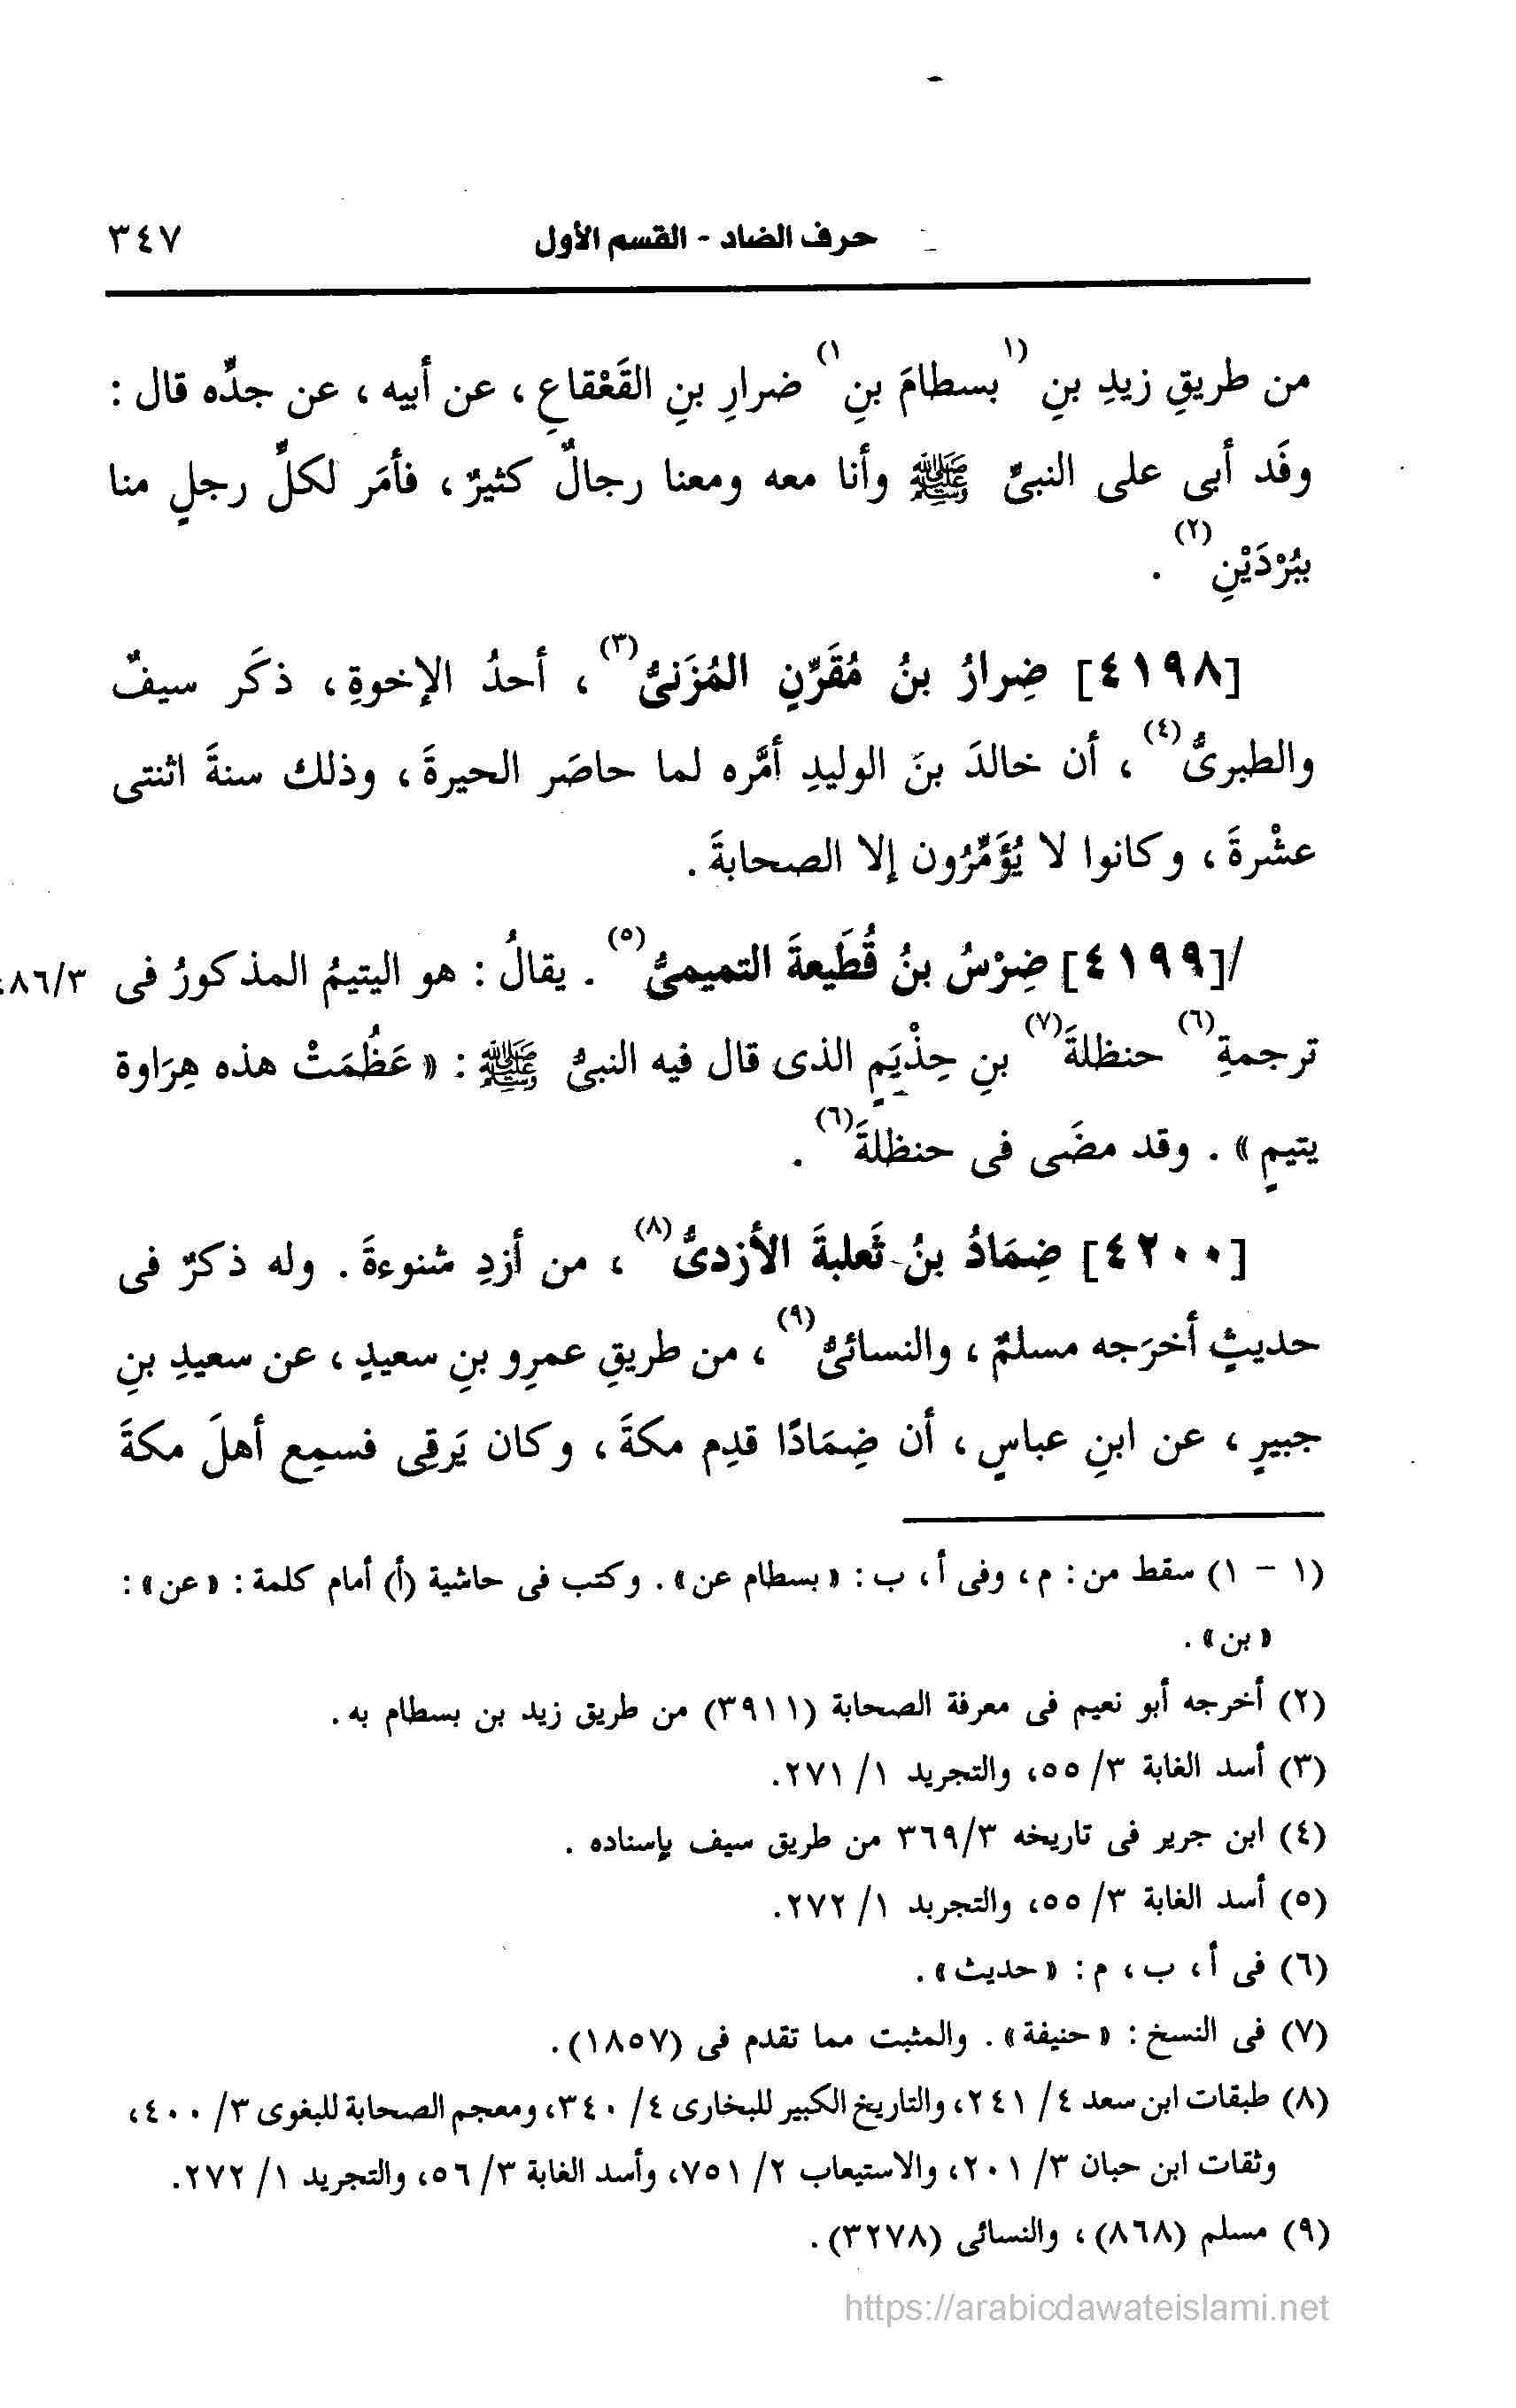 حرف الضاد - القسم الأول ٣٤٧
من طريقِ زيدِ بنِ (١بسطامَ بنِ١) ضرارِ بنِ القَعْقاعِ ، عن أبيه ، عن جدِّه قال :
وفَد أبى على النبىِّ ﷺ وأنا معه ومعنا رجالٌ كثيرٌ ، فأمَر لكلِّ رجلٍ منا
ببُرْدَيْنِ(٢) .
[٤١٩٨] ضِرارُ بنُ مُقَرِّنٍ المُزَنىُّ(٣) ، أحدُ الإخوةِ ، ذكَر سيفٌ
والطبرىُّ(٤) ، أن خالدَ بنَ الوليدِ أمَّره لما حاصَر الحيرةَ ، وذلك سنةَ اثنتى
عشْرةَ ، وكانوا لا يُؤَمِّرُون إلا الصحابةَ .
/[٤١٩٩] ضِرْسُ بنُ قُطَيعةَ التميمىُّ(٥) . يقالُ : هو اليتيمُ المذكورُ فى ٤٨٦/٣
ترجمةِ(٦) حنظلةَ(٧) بنِ حِذْيَمٍ الذى قال فيه النبىُّ ﷺ : « عَظُمَتْ هذه هِرَاوة
يتيمٍ » . وقد مضَى فى حنظلةَ(٦) .
[٤٢٠٠] ضِمَادُ بنُ ثَعلبةَ الأزدىُّ(٨) ، من أزدِ شنوءةَ . وله ذكرٌ فى
حديثٍ أخرَجه مسلمٌ ، والنسائىُّ(٩) ، من طريقِ عمرِو بنِ سعيدٍ ، عن سعيدِ بنِ
جبيرٍ ، عن ابنِ عباسٍ ، أن ضِمَادًا قدِم مكةَ ، وكان يَرقِى فسمِع أهلَ مكةَ
(١ - ١) سقط من : م ، وفى أ ، ب : « بسطام عن » . وكتب فى حاشية (أ) أمام كلمة : « عن » :
« بن » .
(٢) أخرجه أبو نعيم فى معرفة الصحابة (٣٩١١) من طريق زيد بن بسطام به .
(٣) أسد الغابة ٣/ ٥٥، والتجريد ١/ ٢٧١.
(٤) ابن جرير فى تاريخه ٣٦٩/٣ من طريق سيف بإسناده .
(٥) أسد الغابة ٣/ ٥٥، والتجريد ١/ ٢٧٢.
(٦) فى أ ، ب ، م : « حديث » .
(٧) فى النسخ : « حنيفة » . والمثبت مما تقدم فى (١٨٥٧) .
(٨) طبقات ابن سعد ٤/ ٢٤١، والتاريخ الكبير للبخارى ٤/ ٣٤٠، ومعجم الصحابة للبغوى ٣/ ٤٠٠،
وثقات ابن حبان ٣/ ٢٠١، والاستيعاب ٢/ ٧٥١، وأسد الغابة ٣/ ٥٦، والتجريد ١/ ٢٧٢.
(٩) مسلم (٨٦٨) ، والنسائى (٣٢٧٨) .
https://arabicdawateislami.net